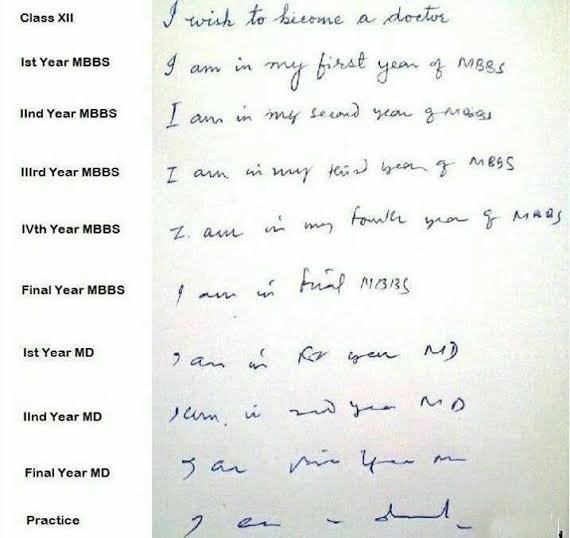 Class XII I wish to become a doctor
Ist Year MBBS I am in my first year of MBBS
IInd Year MBBS I am in my second year of MBBS
IIIrd Year MBBS I am in my third year of MBBS
IVth Year MBBS I. am in my fourth year of MBBS
Final Year MBBS I am in final MBBS
Ist Year MD I am in year MD
IInd Year MD I am in 2nd year MD
Final Year MD I am
Practice I am